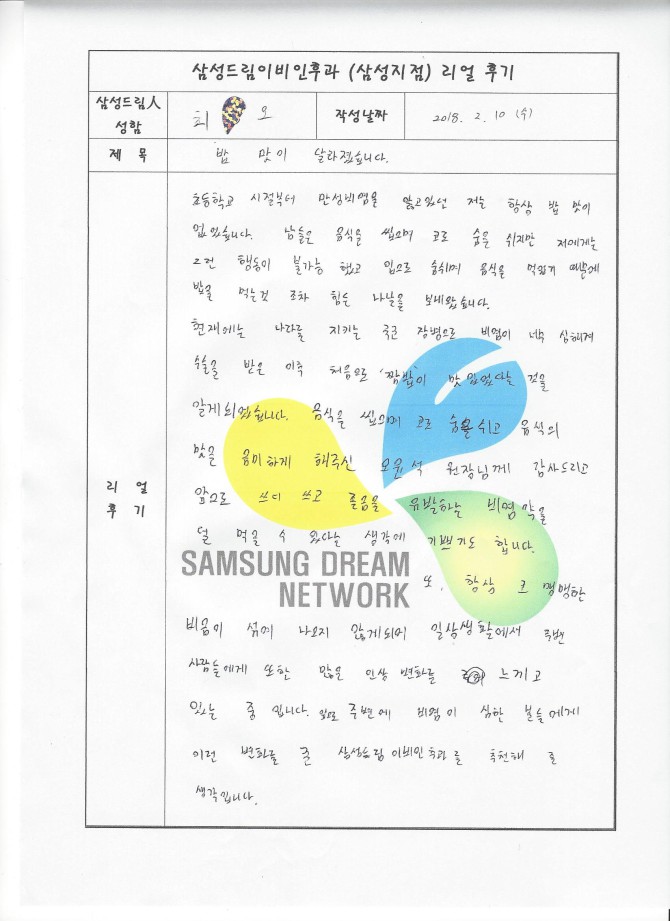 삼성드림이비인후과 (삼성지점) 리얼 후기
삼성드림人
성함
최 오
작성날짜
2018. 2. 10 (수)
제 목
밥 맛이 달라졌습니다.
리 얼
후 기
초등학교 시절부터 만성비염을 앓고있던 저는 항상 밥 맛이
없었습니다. 남들은 음식을 씹으며 코로 숨을 쉬지만 저에게는
그런 행동이 불가능 했고 입으로 숨쉬며 음식을 먹었기 때문에
밥을 먹는것 조차 힘든 나날을 보내왔습니다.
현재에는 나라를 지키는 국군 장병으로 비염이 너무 심해져
수술을 받은 이후 처음으로 '짬밥'이 맛있었다는 것을
알게되었습니다. 음식을 씹으며 코로 숨을 쉬고 음식의
맛을 음미하게 해주신 오윤석 원장님께 감사드리고
앞으로 쓰디 쓰고 졸음을 유발하는 비염약을
덜 먹을 수 있다는 생각에 기쁘기도 합니다.
SAMSUNG DREAM
NETWORK
또, 항상 코 맹맹한
비음이 섞여 나오지 않게되며 일상생활에서 주변
사람들에게 또한 많은 인상 변화를 느끼고
있는 중 입니다. 앞으로 주변에 비염이 심한 분들에게
이런 변화를 준 삼성드림이비인후과를 추천해 줄
생각입니다.